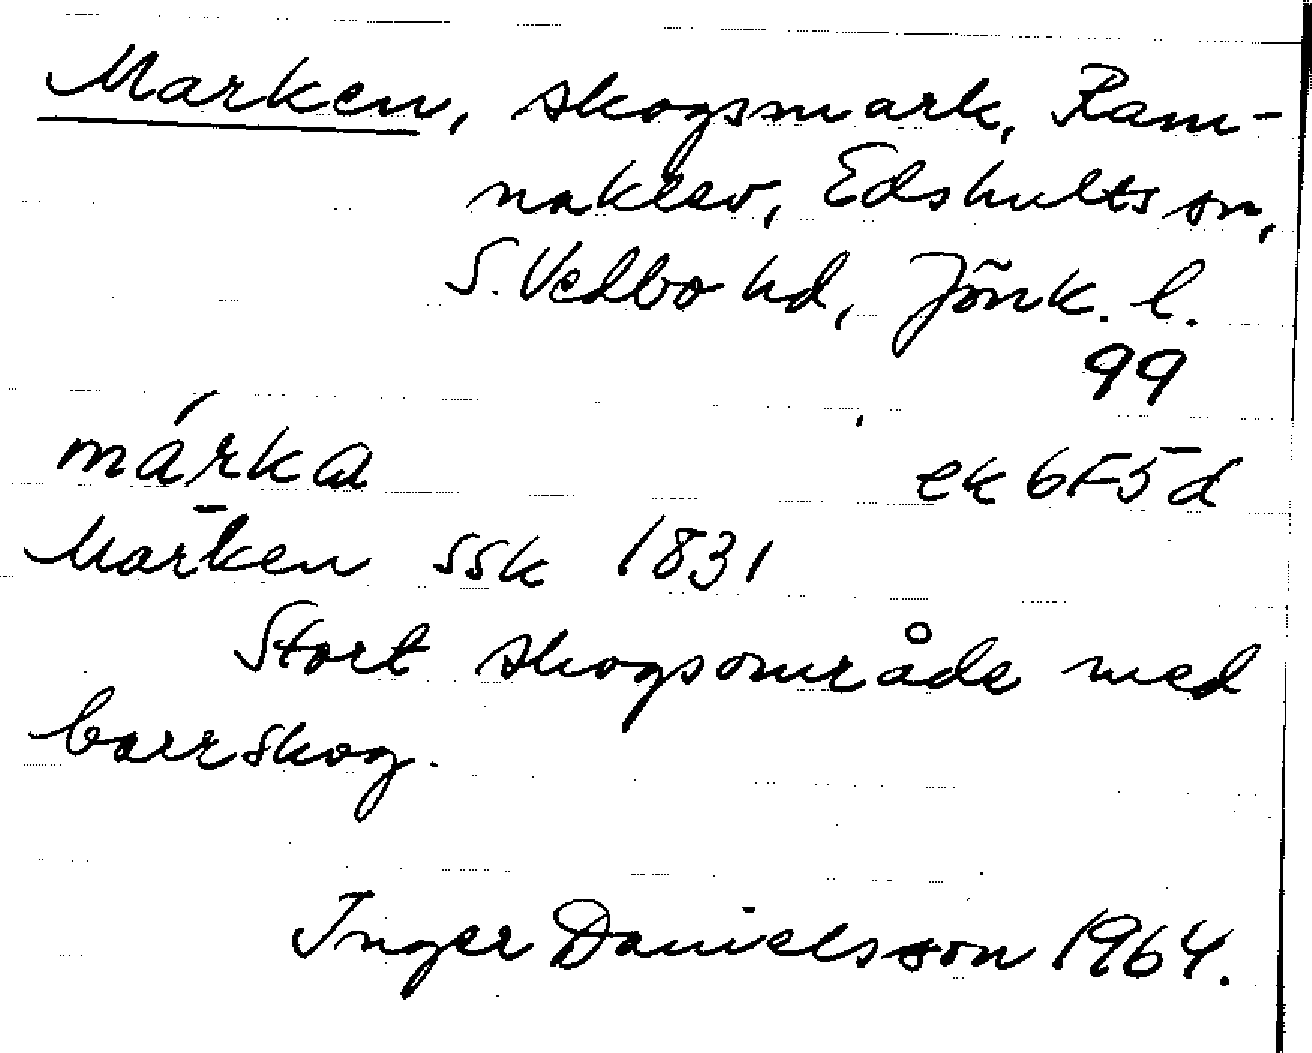 Marken, skogsmark, Ram-
naklev, Edshults sn,
S. Vedbo hd, Jönk. l.
99
márka ek 6F5d
Marken SSK 1831
Stort skogsområde med
barrskog.
Inger Danielsson 1964.